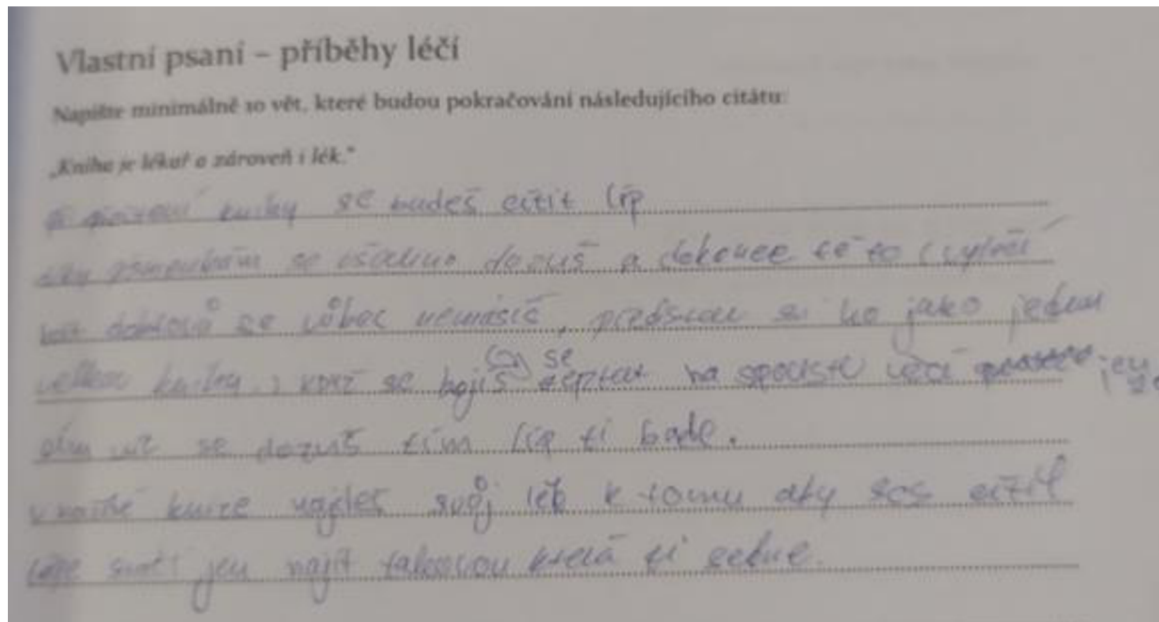 Vlastní psaní – příběhy léčí
Napište minimálně 10 vět, které budou pokračování následujícího citátu:
„Kniha je lékař a zároveň i lék.“
knihy se budeš cítit líp
se všechno dozvíš a dokonce tě to i vyléčí
doktorů se vůbec nemusíš, představ si ho jako jednu
velkou knihu, když se bojíš se zeptat na spoustu věcí
se dozvíš tím líp ti bude.
v každé knize najdeš svůj lék k tomu aby ses cítil
lépe stačí jen najít takovou která ti sedne.